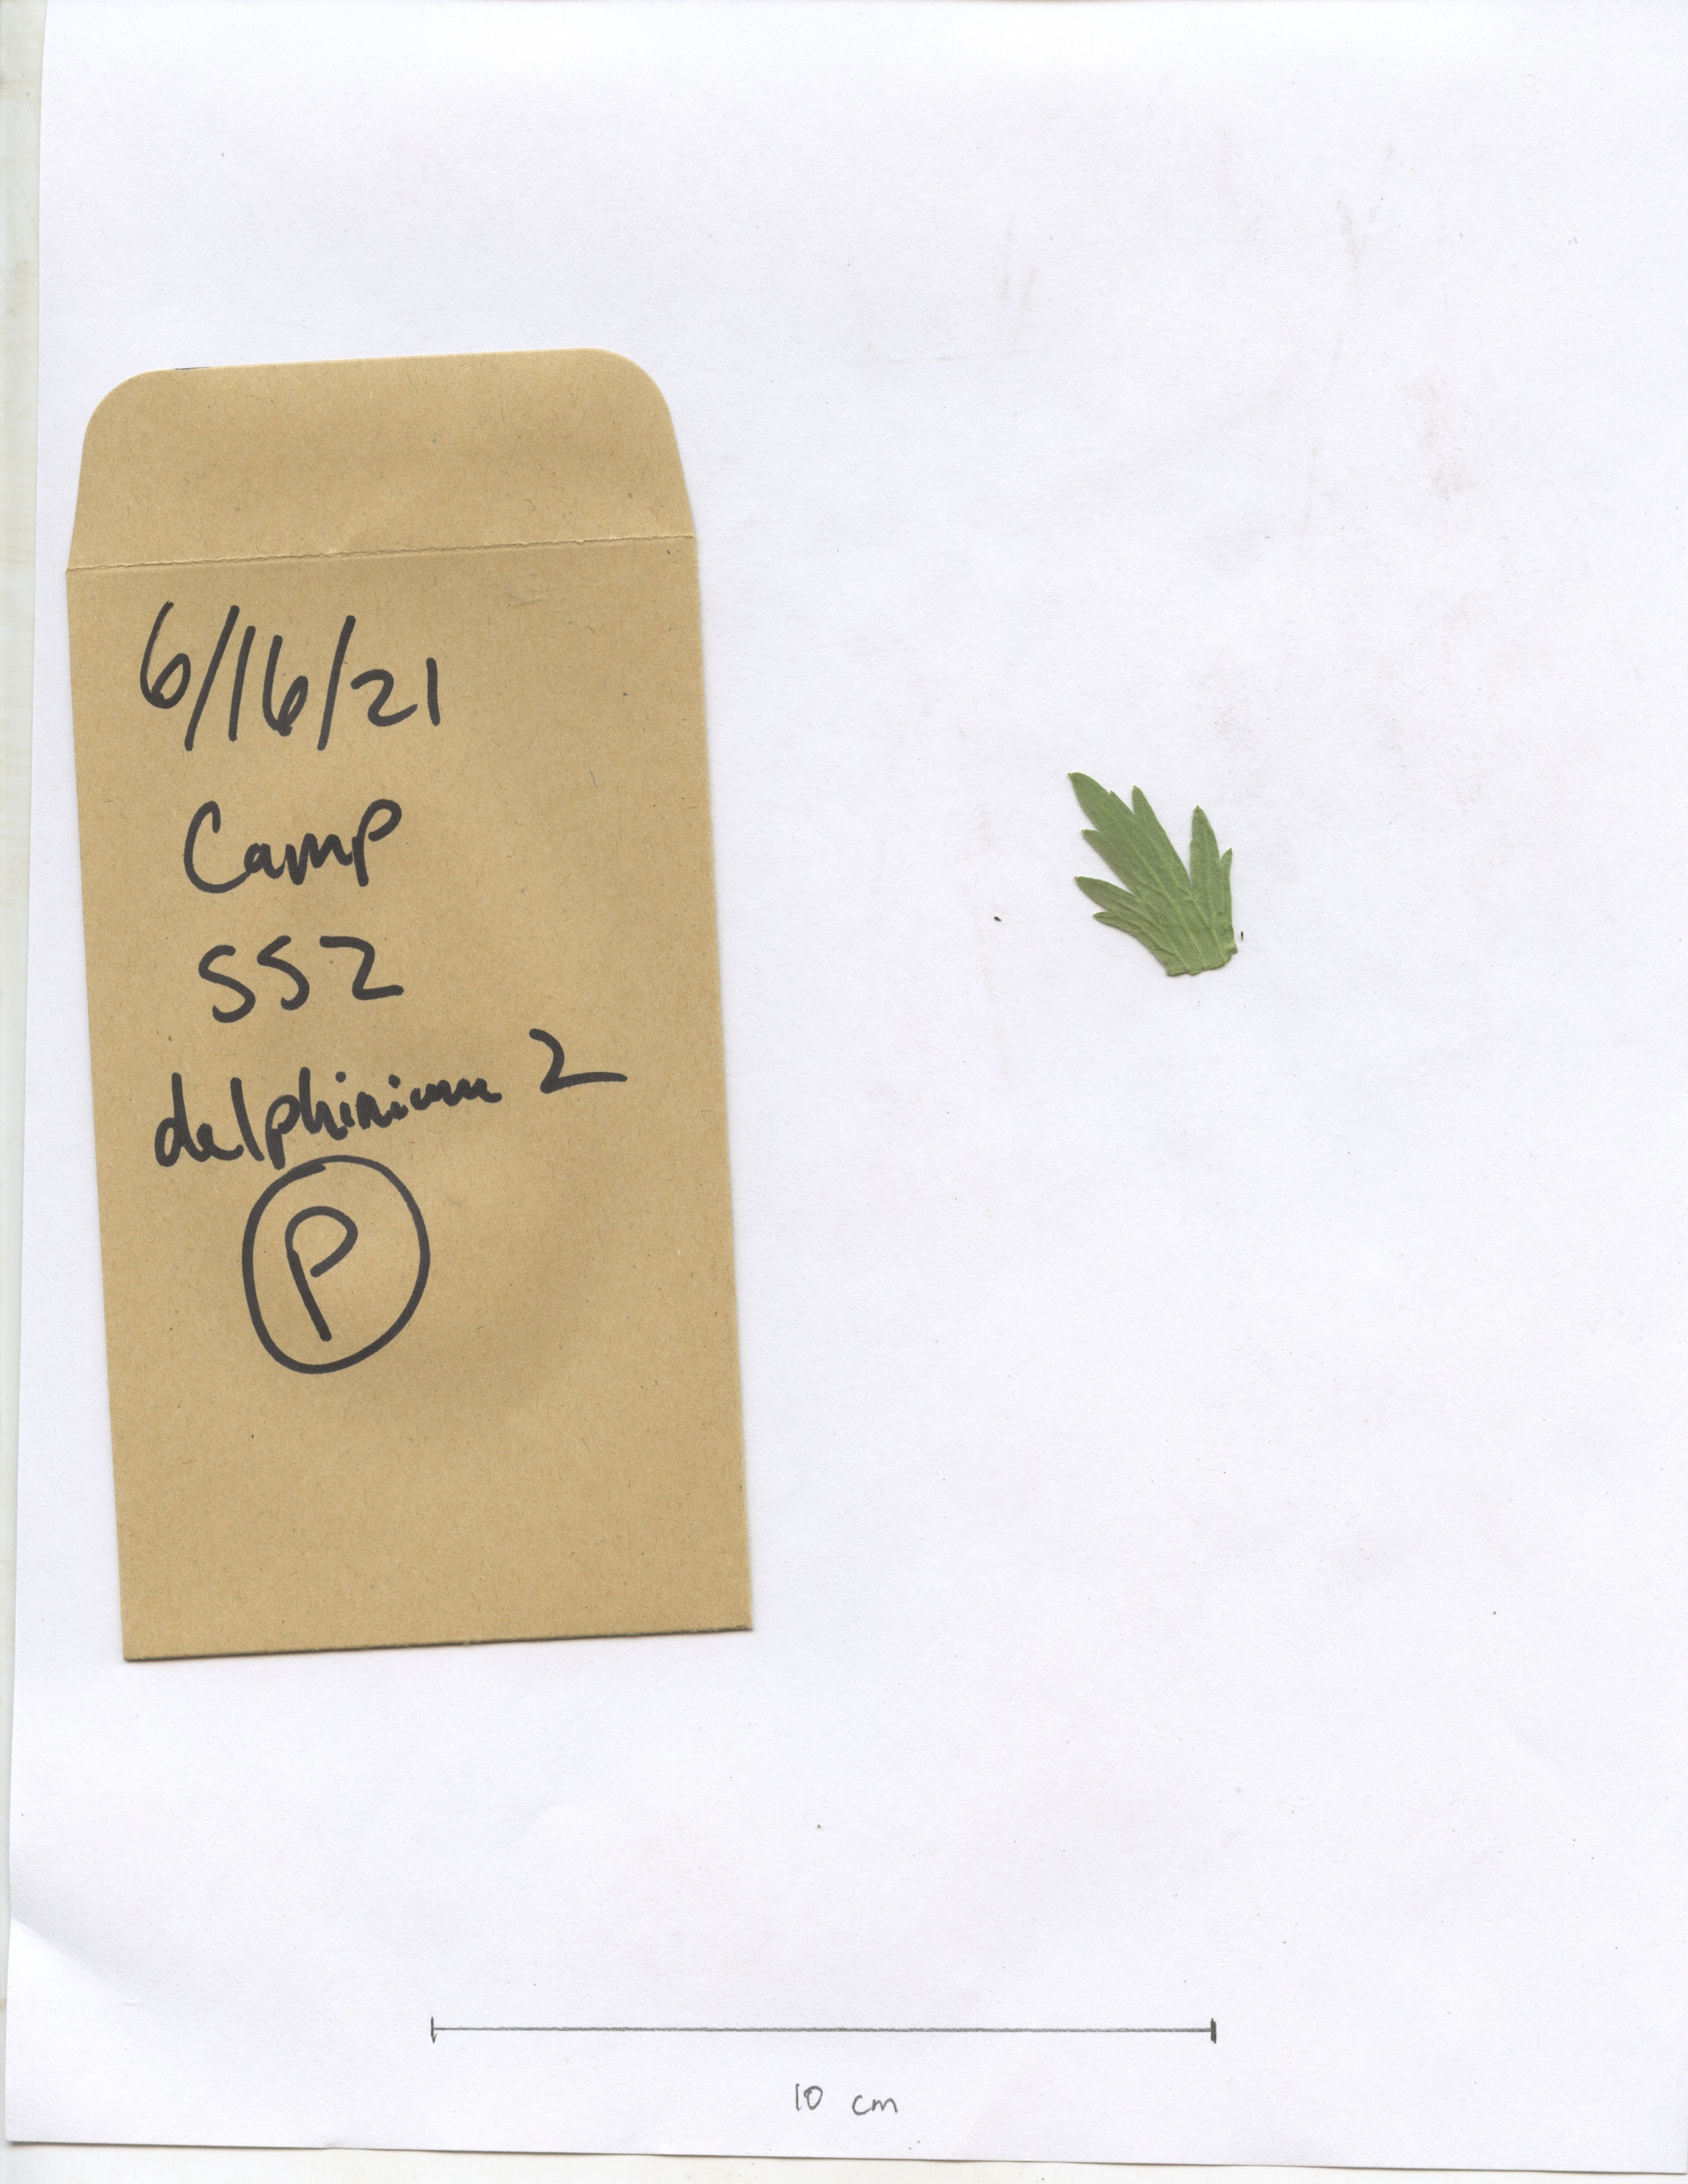 6/16/21
Camp
SS2
delphinium 2
P
10 cm